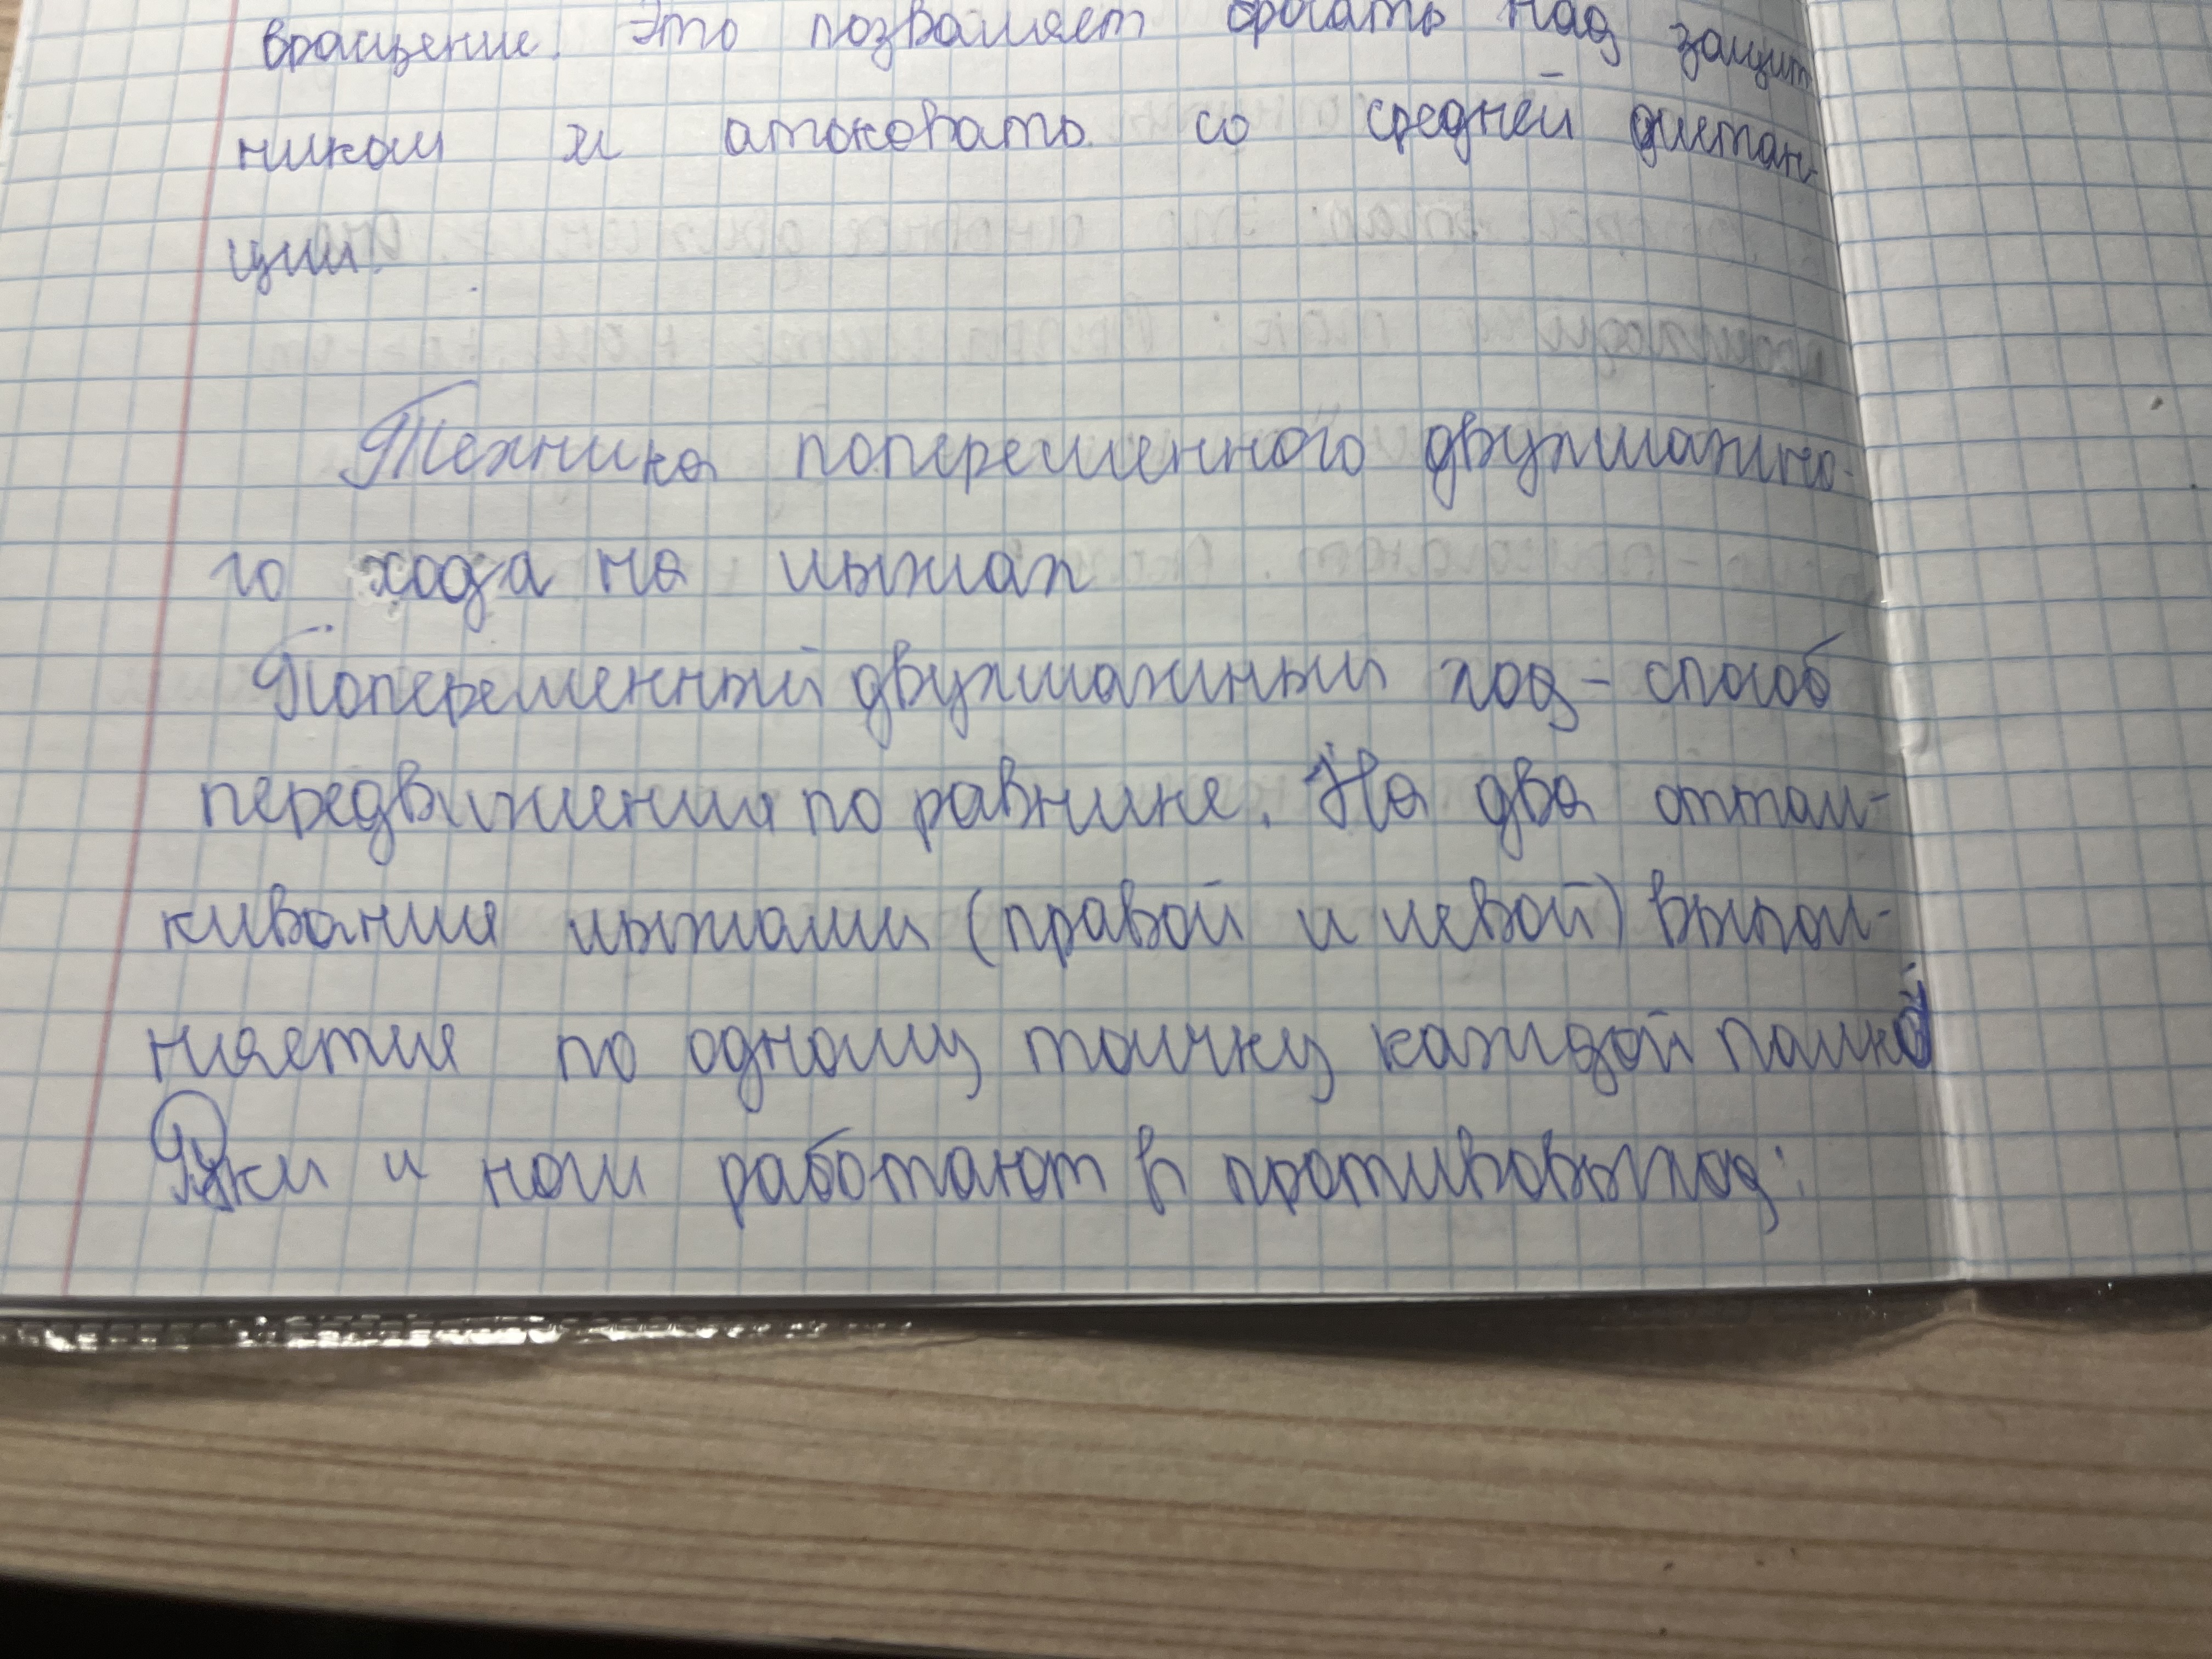 вращение. Это позволяет бросать над защит
ником и атаковать со средней дистан-
ции.
Техника попеременного двухшажно-
го хода на лыжах
Попеременный двухшажный ход - способ
передвижения по равнине. На два оттал-
кивания лыжами (правой и левой) выпол-
няется по одному толчку каждой палкой
Руки и ноги работают в противовыход: